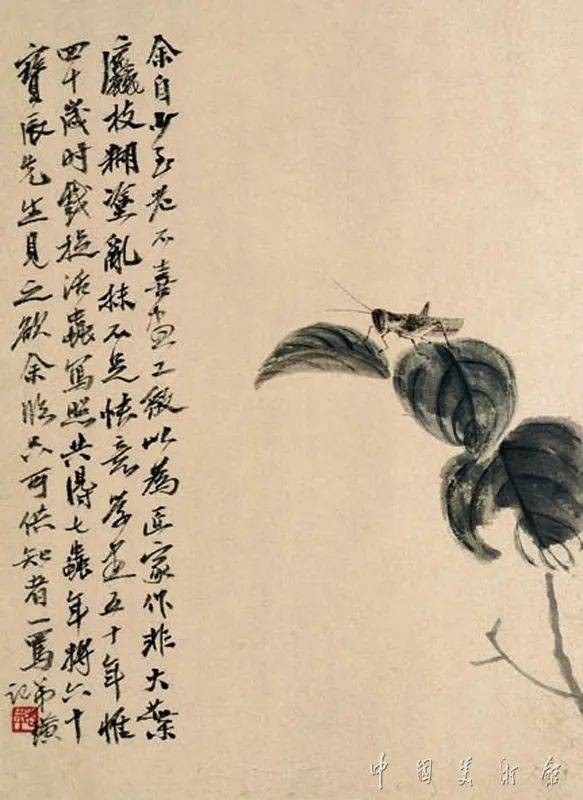 余自少至老不喜畫工緻以為匠家作非大葉
麤枝糊塗亂抹不足快意學畫五十年惟
四十歲時戲捉活蟲寫照共得七蟲年將六十
寶辰先生見之欲余臨只可供知者一罵弟璜
記
中國美術館